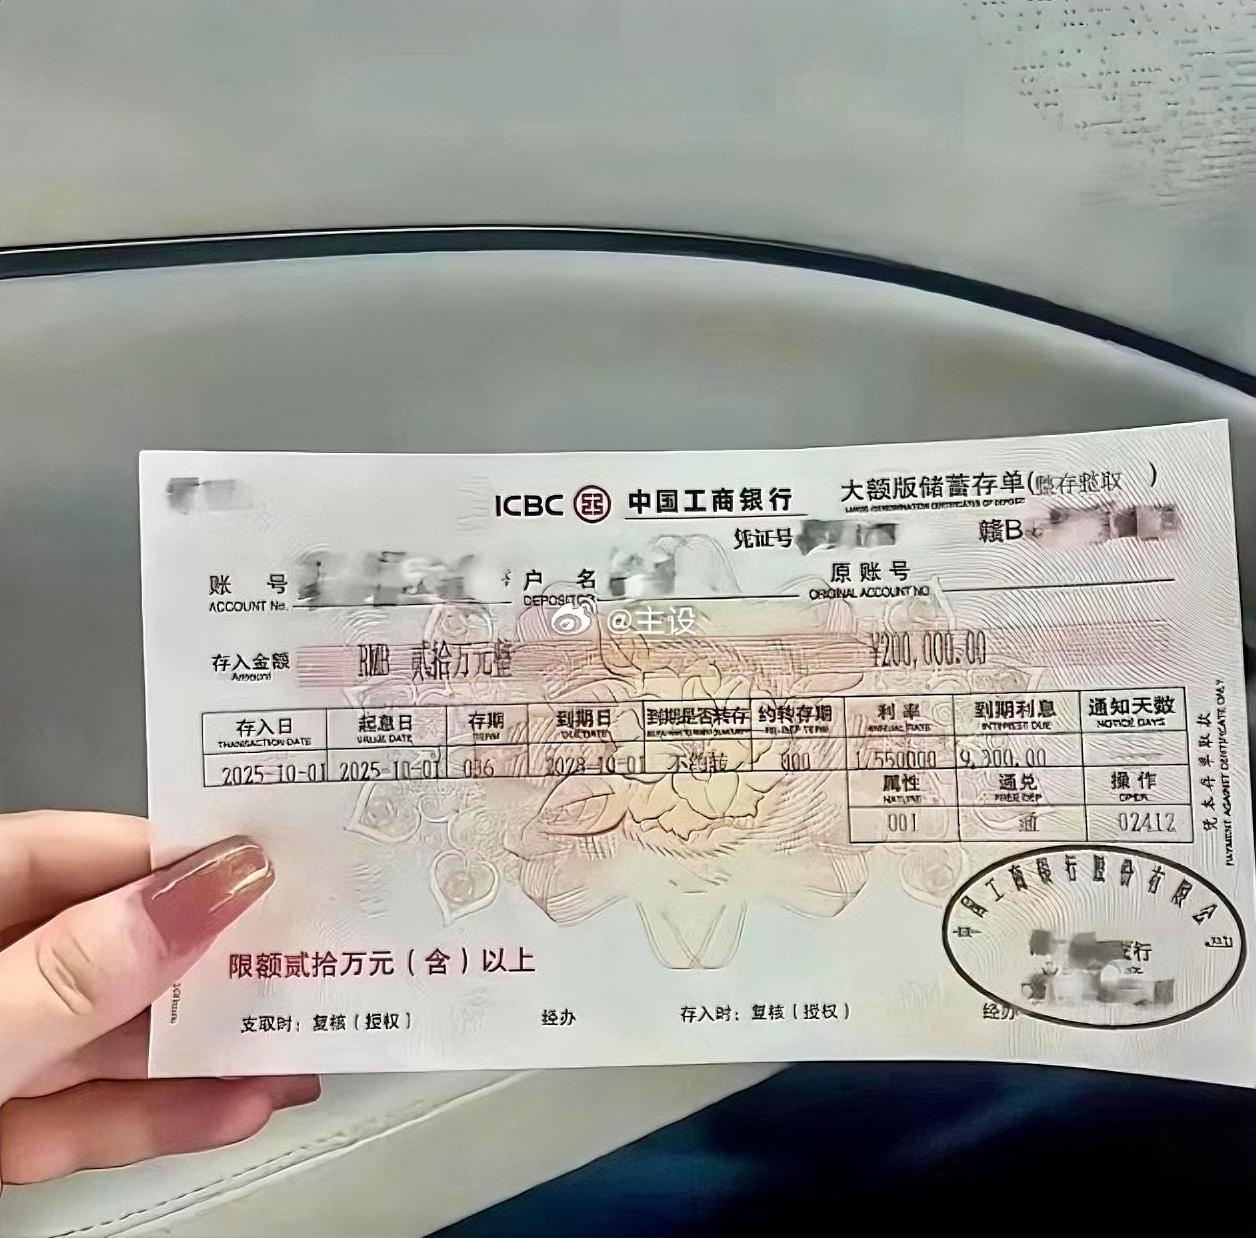 ICBC 中国工商银行 大额版储蓄存单(整存整取)
凭证号 赣B
账 号 户 名 原账号
ACCOUNT No. DEPOSITOR ORIGINAL ACCOUNT NO
@主设
存入金额 RMB 贰拾万元整 ¥200,000.00
Amount
存入日 起息日 存期 到期日 到期是否转存 约转存期 利率 到期利息 通知天数
TRANSACTION DATE VALUE DATE TERM DUE DATE INTEREST DUE NOTICE DAYS
2025-10-01 2025-10-01 036 2028-10-01 不约转 000 1.550000 9,300.00
属性 通兑 操作
001 通 02412
凭本存单取款
PAYMENT AGAINST CERTIFICATE ONLY
中国工商银行股份有限公司
支行
限额贰拾万元(含)以上
支取时:复核(授权) 经办 存入时:复核(授权) 经办